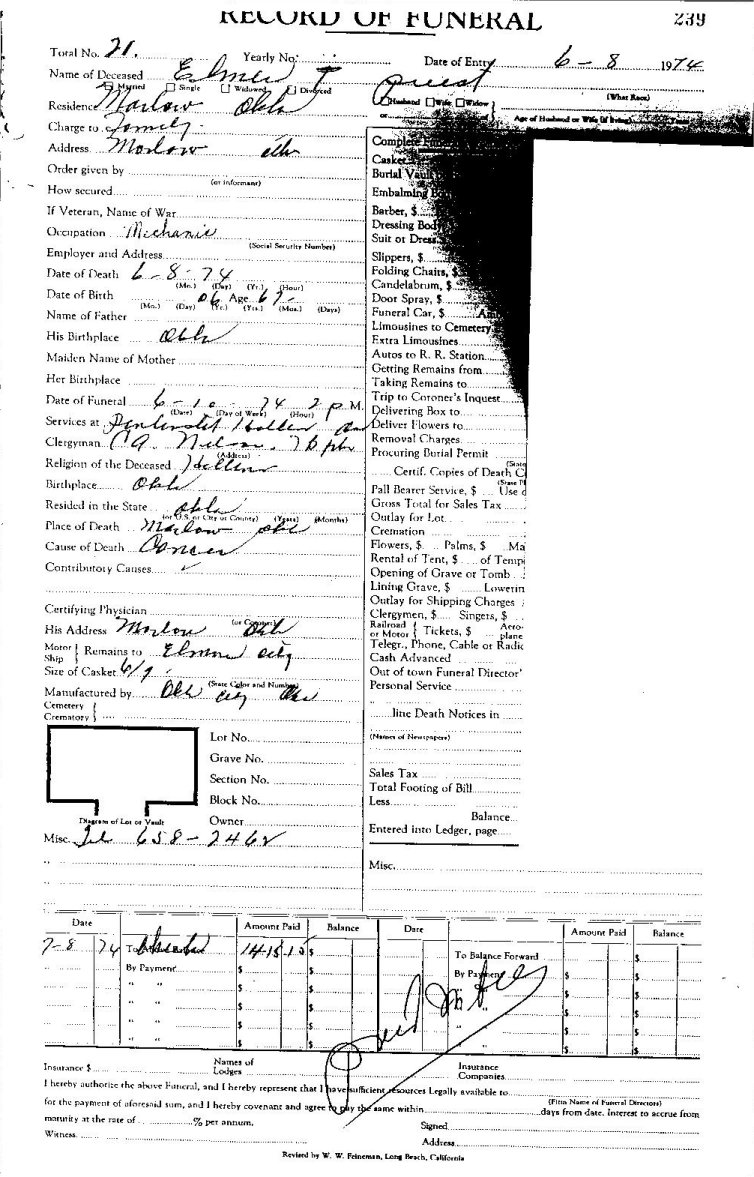 RECORD OF FUNERAL 239
Total No. 21. Yearly No. Date of Entry 6 - 8 1974
Name of Deceased Elmer J Priest
Married Single Widowed Divorced Husband Wife Widow (What Race)
Residence Marlow Okla
or of Age of Husband or Wife (if living)
Charge to Family
Address Marlow Okla
Order given by
(or informant)
How secured
If Veteran, Name of War
Occupation Mechanic
(Social Security Number)
Employer and Address
Date of Death 6 - 8 - 74
(Mo.) (Day) (Yr.) (Hour)
Date of Birth 06 Age 67
(Mo.) (Day) (Yr.) (Yrs.) (Mos.) (Days)
Name of Father
His Birthplace Okla
Maiden Name of Mother
Her Birthplace
Date of Funeral 6 - 10 - 74 2 P M.
(Date) (Day of Week) (Hour)
Services at
Clergyman C A. Nelson.
(Address)
Religion of the Deceased
Birthplace Okla
Resided in the State Okla
(or U.S. or City or County) (Years) (Months)
Place of Death Marlow Okla
Cause of Death Cancer
Contributory Causes
Certifying Physician
(or Coroner)
His Address Marlow Okla
Motor Ship } Remains to Elmore City
Size of Casket 6/9
(State Color and Number)
Manufactured by Okla City Okla
Cemetery
Crematory
Lot No.
Grave No.
Section No.
Block No.
Diagram of Lot or Vault Owner
Misc. Tel 658-2462
Complete
Casket
Burial Vault
Embalming Body
Barber, $
Dressing Body
Suit or Dress
Slippers, $
Folding Chairs, $
Candelabrum, $
Door Spray, $
Funeral Car, $
Limousines to Cemetery
Extra Limousines
Autos to R. R. Station
Getting Remains from
Taking Remains to
Trip to Coroner's Inquest
Delivering Box to
Deliver Flowers to
Removal Charges
Procuring Burial Permit
(State
Certif. Copies of Death C
(State P
Pall Bearer Service, $ Use o
Gross Total for Sales Tax
Outlay for Lot
Cremation
Flowers, $ Palms, $ Ma
Rental of Tent, $ of Temp
Opening of Grave or Tomb
Lining Grave, $ Lowerin
Outlay for Shipping Charges
Clergymen, $ Singers, $
Railroad or Motor { Tickets, $ Aero-plane
Telegr., Phone, Cable or Radio
Cash Advanced
Out of town Funeral Director'
Personal Service
line Death Notices in
(Names of Newspapers)
Sales Tax
Total Footing of Bill
Less
Balance
Entered into Ledger, page
Misc.
Date Amount Paid Balance Date Amount Paid Balance
7-8 74 1415 15 $ To Balance Forward $
By Payment $ $ By Payment $ $
" " $ $ " " $ $
" " $ $ " " $ $
" " $ $ " " $ $
" " $ $ " " $ $
Paid in full
Insurance $ Names of Lodges Insurance Companies
I hereby authorize the above Funeral, and I hereby represent that I have sufficient resources Legally available to
(Firm Name of Funeral Directors)
for the payment of aforesaid sum, and I hereby covenant and agree to pay the same within days from date. Interest to accrue from
maturity at the rate of % per annum. Signed
Witness Address
Revised by W. W. Feineman, Long Beach, California